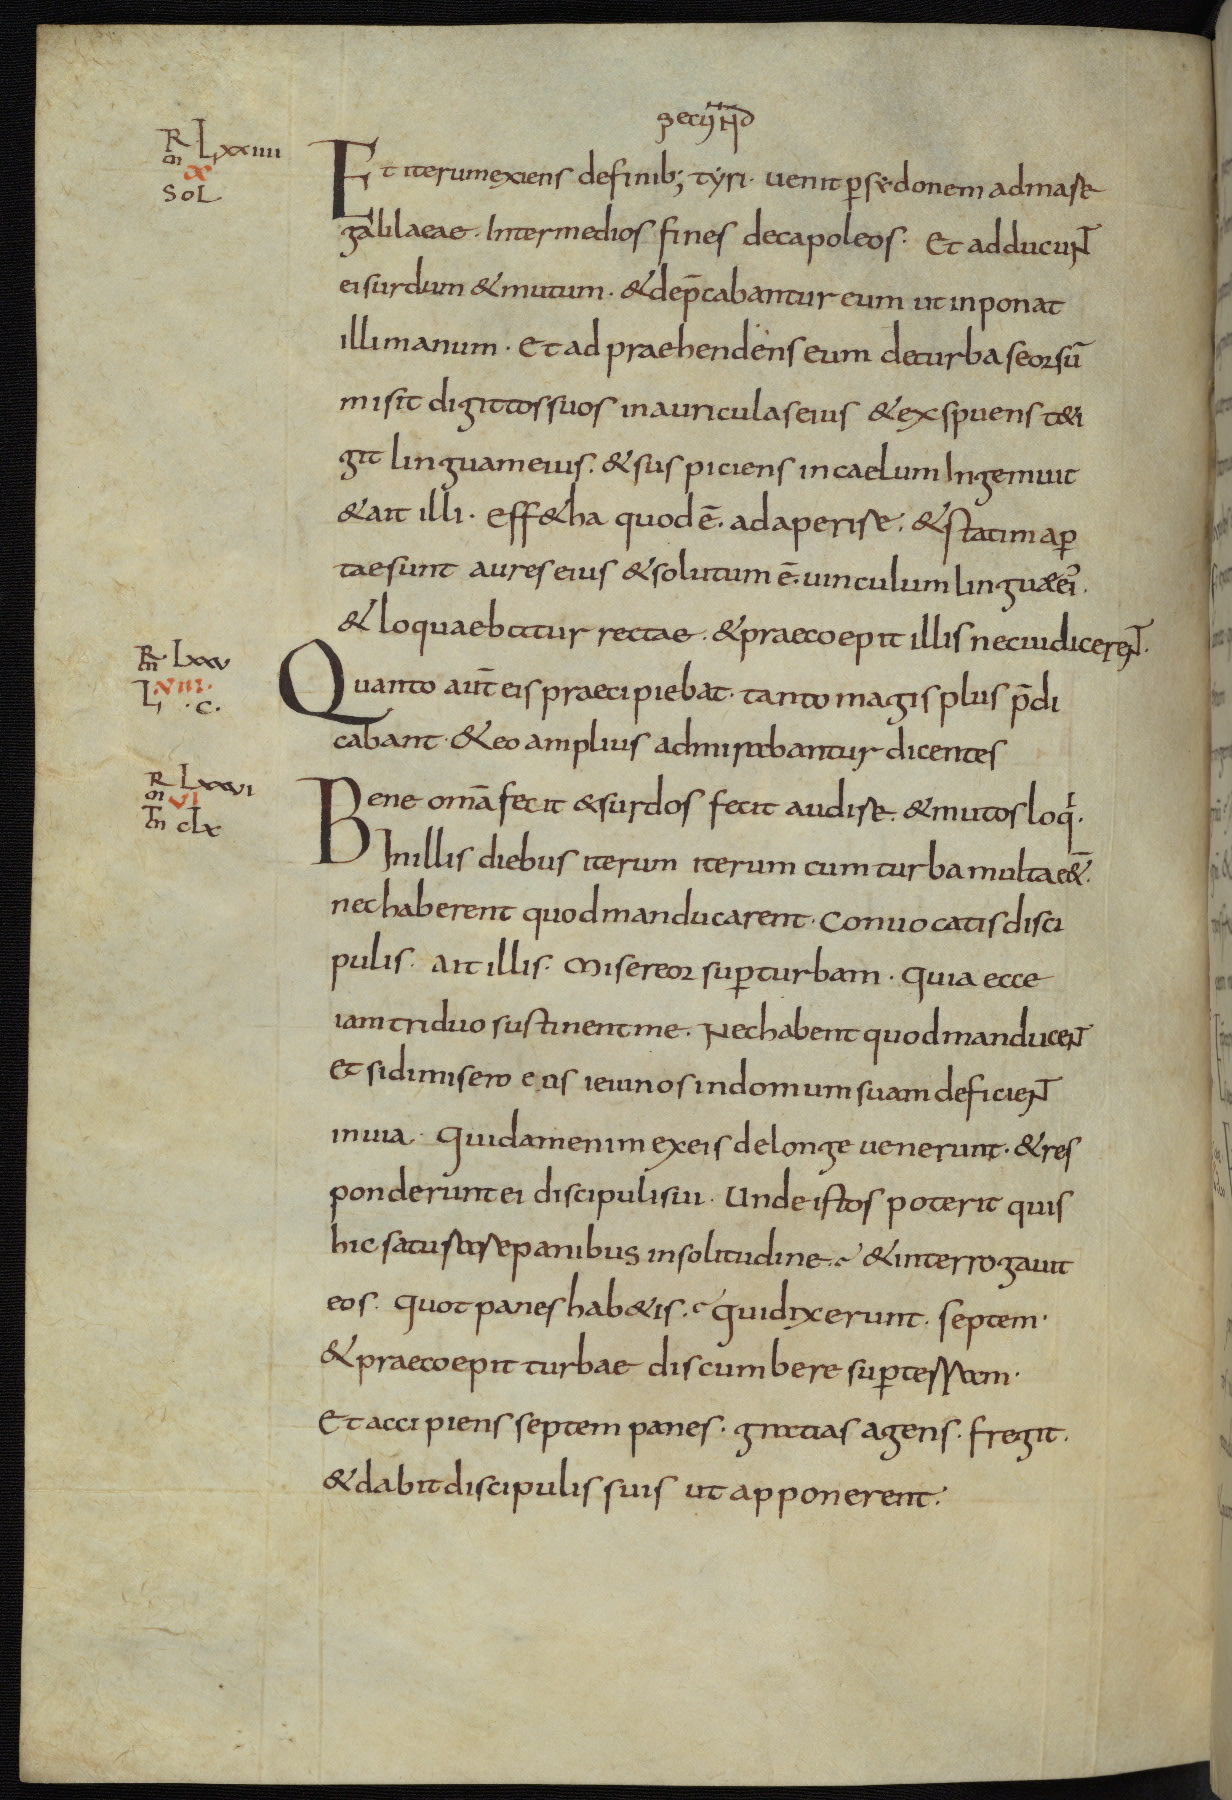 secund
R LXXIIII
m X
SOL
Et iterum exiens de finib; tyri. uenit p sydonem ad mare
galilaeae. Inter medios fines decapoleos. Et adducunt
ei surdum & mutum. & dep̄cabantur eum ut inponat
illi manum. Et adpraehendens eum de turba seorsū
misit digittos suos in auriculas eius & exspuens t&i
git linguam eius. & suspiciens in caelum Ingemuit
& ait illi. Eff&ha quod ē. adaperire. & statim ap
tae sunt aures eius & solutum ē. uinculum linguae ei'.
& loquaebatur rectae. & praecoepit illis ne cui dicerent.
R LXXV
m VIII.
L, .C.
Quanto aut̄ eis praecipiebat. tanto magis plus p̄di
cabant. & eo amplius admirabantur dicentes
R LXXVI
m VI
M CLX
Bene omā fecit & surdos fecit audire. & mutos loq.
In illis diebus iterum iterum cum turba multa e&̄.
nec haberent quod manducarent. Conuocatis disci
pulis. Ait illis. Misereor sup turbam. quia ecce
iam triduo sustinent me. Nec habent quod manducent
et si dimisero eos ieiunos in domum suam deficient
in uia. Quidam enim ex eis de longe uenerunt. & res
ponderunt ei discipuli sui. Unde istos poterit quis
hic saturare panibus in solitudine. & interrogauit
eos. Quot panes hab&is. Qui dixerunt. septem.
& praecoepit turbae discumbere sup terram.
Et accipiens septem panes. gratias agens. fregit.
& dabit discipulis suis ut apponerent.